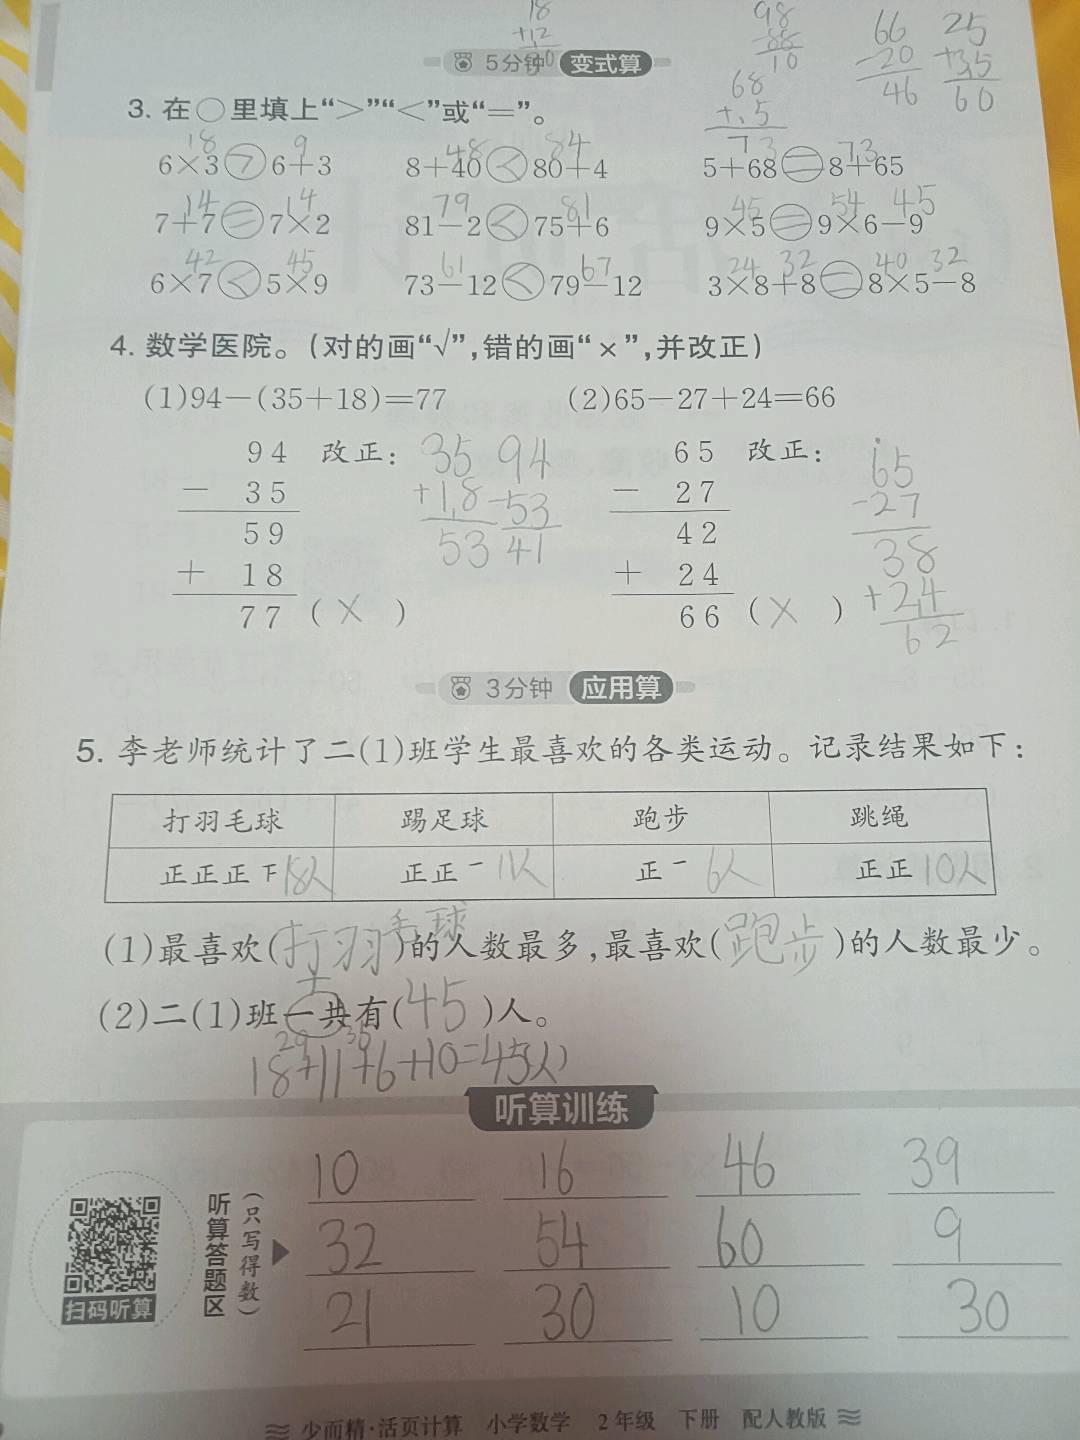 18
+12
30
98
-88
10
66
-20
46
25
+35
60
68
+5
73
5分钟 变式算
3. 在○里填上“>”“<”或“=”。
18 9 48 84 73
6×3>6+3 8+40<80+4 5+68=8+65
14 14 79 81 45 54 45
7+7=7×2 81-2<75+6 9×5=9×6-9
42 45 61 67 24 32 40 32
6×7<5×9 73-12<79-12 3×8+8=8×5-8
4. 数学医院。(对的画“√”,错的画“×”,并改正)
(1)94-(35+18)=77 (2)65-27+24=66
94 改正: 35 94 65 改正: 65
- 35 +18 -53 - 27 -27
59 53 41 42 38
+ 18 + 24 +24
77 (×) 66 (×) 62
3分钟 应用算
5. 李老师统计了二(1)班学生最喜欢的各类运动。记录结果如下:
打羽毛球 踢足球 跑步 跳绳
正正正下18人 正正一11人 正一6人 正正10人
(1)最喜欢(打羽毛球)的人数最多,最喜欢(跑步)的人数最少。
(2)二(1)班一共有(45)人。
29 35
18+11+6+10=45(人)
听算训练
扫码听算
听算答题区
(只写得数)
10 16 46 39
32 54 60 9
21 30 10 30
少而精·活页计算 小学数学 2年级 下册 配人教版